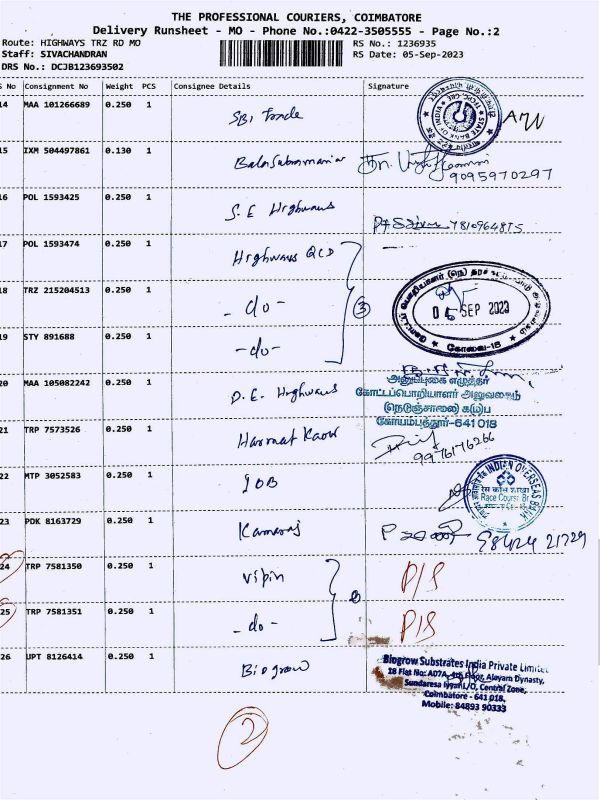 THE PROFESSIONAL COURIERS, COIMBATORE
Delivery Runsheet - MO - Phone No.:0422-3505555 - Page No.:2
Route: HIGHWAYS TRZ RD MO
Staff: SIVACHANDRAN
DRS No.: DCJB123693502
RS No.: 1236935
RS Date: 05-Sep-2023
S No Consignment No Weight PCS Consignee Details Signature
14 MAA 101266689 0.250 1 SBI Trade
STATE BANK OF INDIA
15 IXM 504497861 0.130 1 Balasubramania
9095970297
16 POL 1593425 0.250 1 S.E Highways
17 POL 1593474 0.250 1 Highways QCD
18 TRZ 215204513 0.250 1 - do -
3
05 SEP 2023
கோவை-18
19 STY 891688 0.250 1 -do-
20 MAA 105082242 0.250 1 D.E. Highways
அனுப்புகை எழுத்தர்
கோட்டப்பொறியாளர் அலுவலகம்
(நெடுஞ்சாலை) க(ம)ப
கோயம்புத்தூர்-641 018
21 TRP 7573526 0.250 1 Harmat Kaour
9976176266
22 MTP 3052583 0.250 1 IOB
INDIAN OVERSEAS BANK
Race Course Br
23 PDK 8163729 0.250 1 Kamaraj
98424 21729
24 TRP 7581350 0.250 1 Vipin P/S
25 TRP 7581351 0.250 1 - do - P/S
26 UPT 8126414 0.250 1 Biogrow
Biogrow Substrates India Private Limited
18 Flat No: A07A, 4th Floor, Alayam Dynasty,
Sundaresa Iyyar L/O, Central Zone,
Coimbatore - 641 018,
Mobile: 84893 90333
2